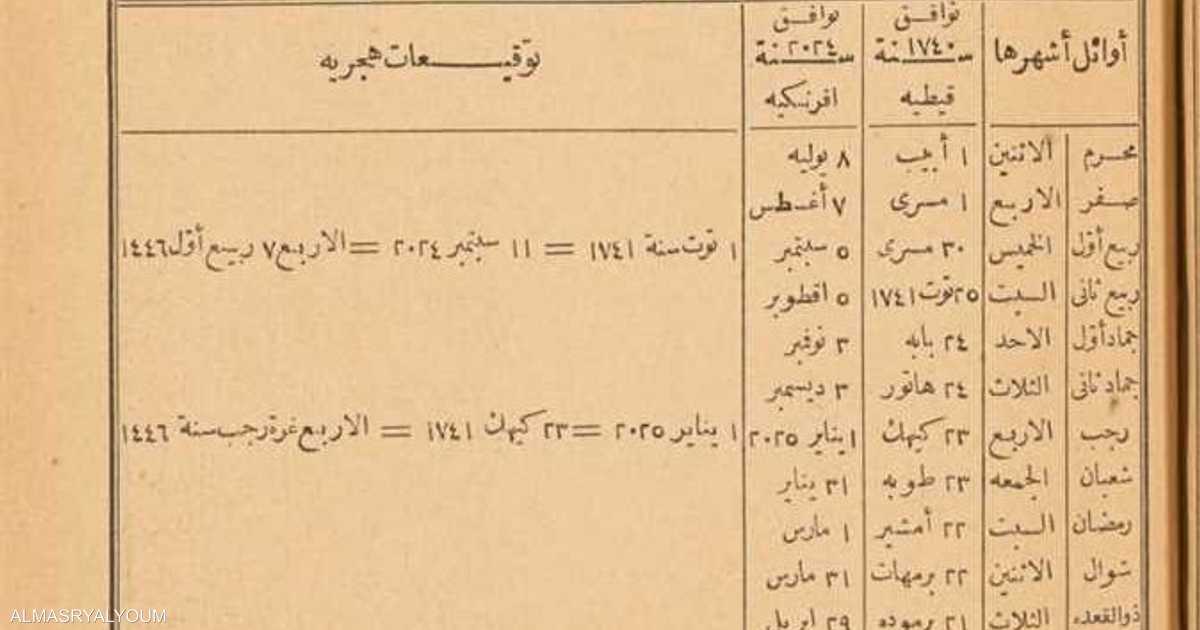 أوائل أشهرها توافق سنة ١٧٤٠ قبطيه توافق سنة ٢٠٢٤ افرنكيه توقيعات هجريه
محرم الاثنين ١ أبيب ٨ يوليه
صفر الاربع ١ مسرى ٧ أغسطس
ربيع أوّل الخميس ٣٠ مسرى ٥ سبتمبر ١ توت سنة ١٧٤١ = ١١ سبتمبر ٢٠٢٤ = الاربع ٧ ربيع أوّل ١٤٤٦
ربيع ثانى السبت ٢٥ توت ١٧٤١ ٥ اقطوبر
جماد أوّل الاحد ٢٤ بابه ٣ نوفمبر
جماد ثانى الثلاث ٢٤ هاتور ٣ ديسمبر
رجب الاربع ٢٣ كيهك ١ يناير ٢٠٢٥ ١ يناير ٢٠٢٥ = ٢٣ كيهك ١٧٤١ = الاربع غرة رجب سنة ١٤٤٦
شعبان الجمعه ٢٣ طوبه ٣١ يناير
رمضان السبت ٢٢ أمشير ١ مارس
شوال الاثنين ٢٢ برمهات ٣١ مارس
ذوالقعده الثلاث ٢١ برموده ٢٩ ابريل
ALMASRYALYOUM